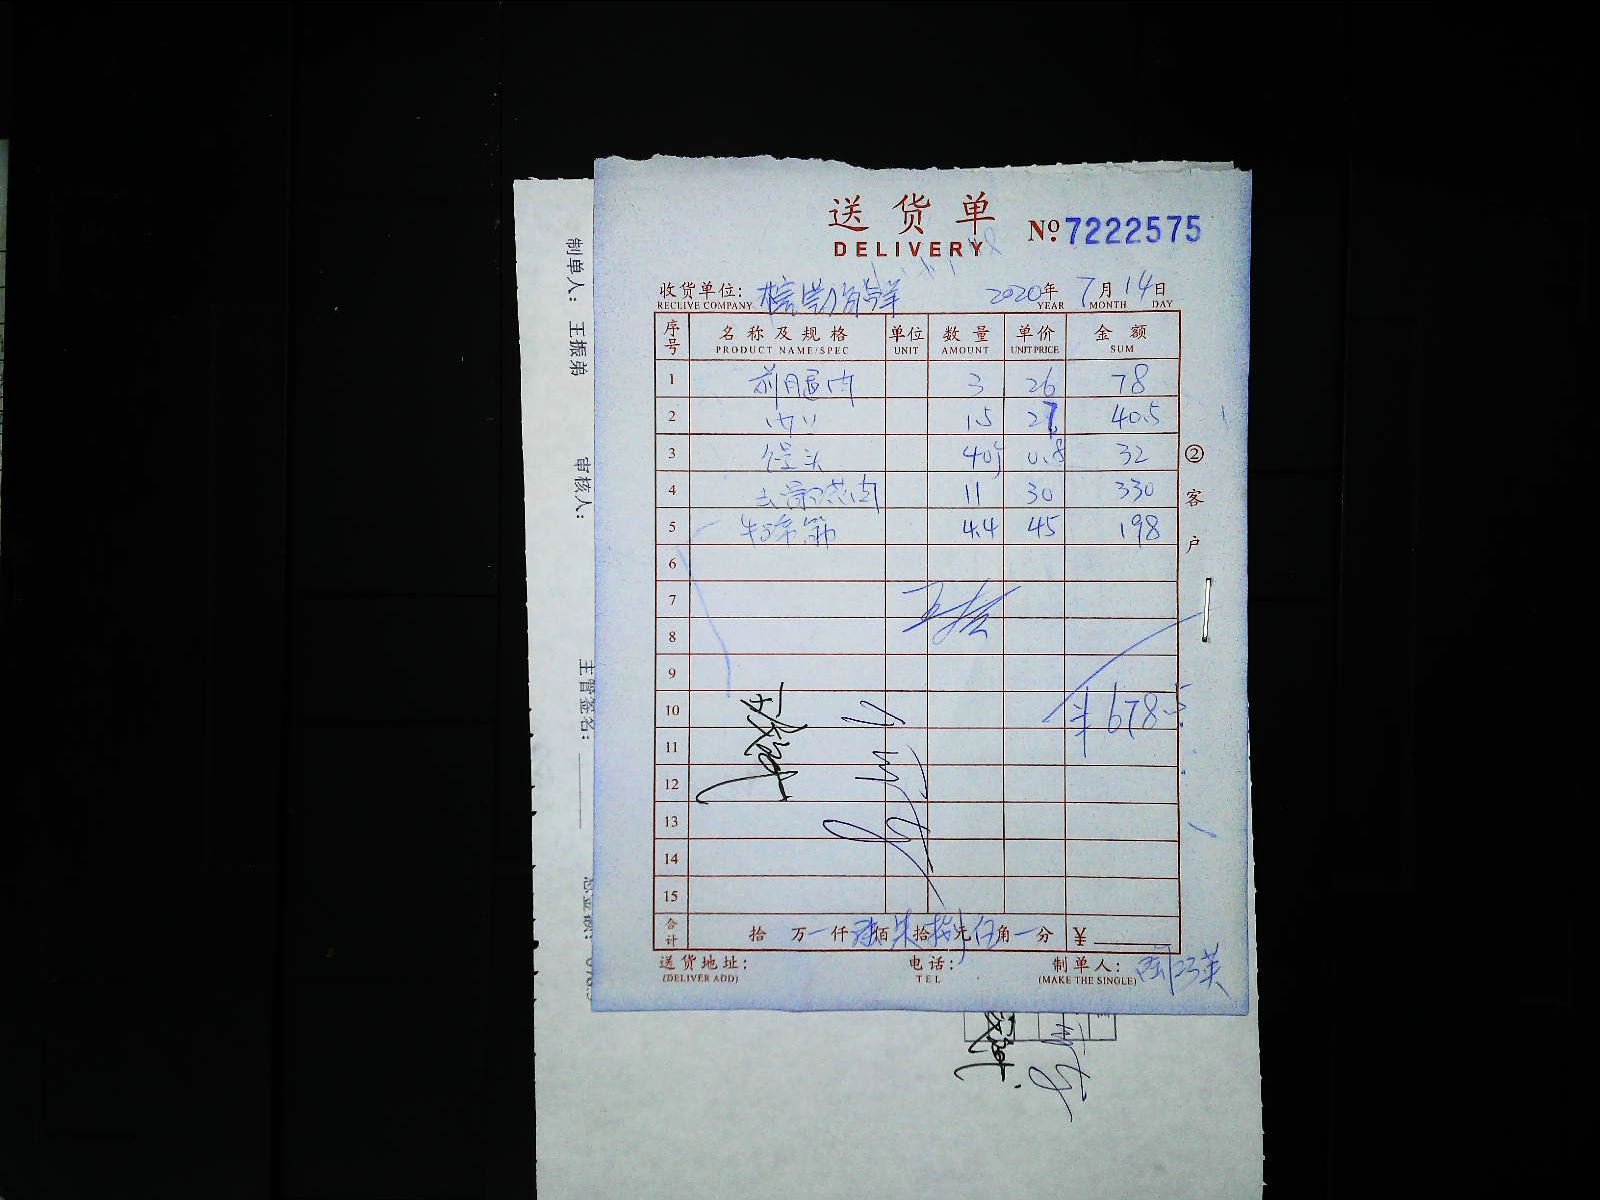 送货单
DELIVERY
№ 7222575
收货单位:
RECLIVE COMPANY
2020年 7月 14日
YEAR MONTH DAY
序号 名称及规格 单位 数量 单价 金额
PRODUCT NAME/SPEC UNIT AMOUNT UNIT PRICE SUM
1 前腿肉 3 26 78
2 1.5 27 40.5
3 馒头 40 0.8 32
4 11 30 330
5 牛蹄筋 4.4 45 198
6
7
8
9
10 ¥678.5
11
12
13
14
15
合计 拾 万 一 仟 陆 佰 柒 拾 捌 元 伍 角 一 分 ¥
送货地址: 电话: 制单人:
(DELIVER ADD) TEL (MAKE THE SINGLE)
② 客户
制单人: 王振弟
审核人:
主管签名:
总金额: